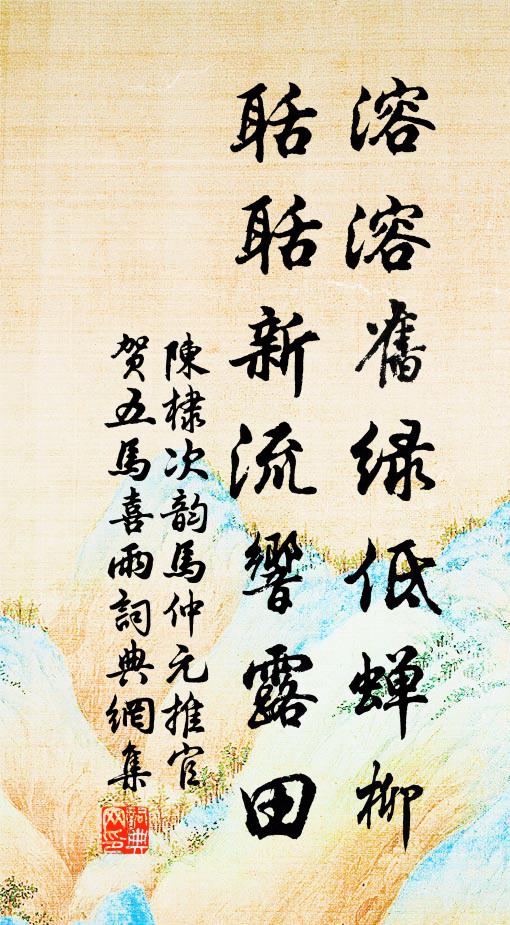 溶溶舊緑低蝉柳
聒聒新流響露田
陳棣次韵馬仲元推官
贺五馬喜雨詞典網集
詞典网印